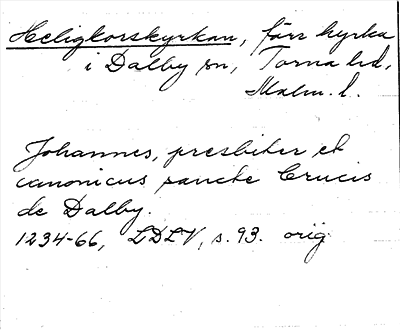 Heligkorskyrkan, förr kyrka
i Dalby sn, Torna hd,
Malm. l.
Johannes, presbiter et
canonicus sancte Crucis
de Dalby.
1234-66, LDLV, s. 93. orig.